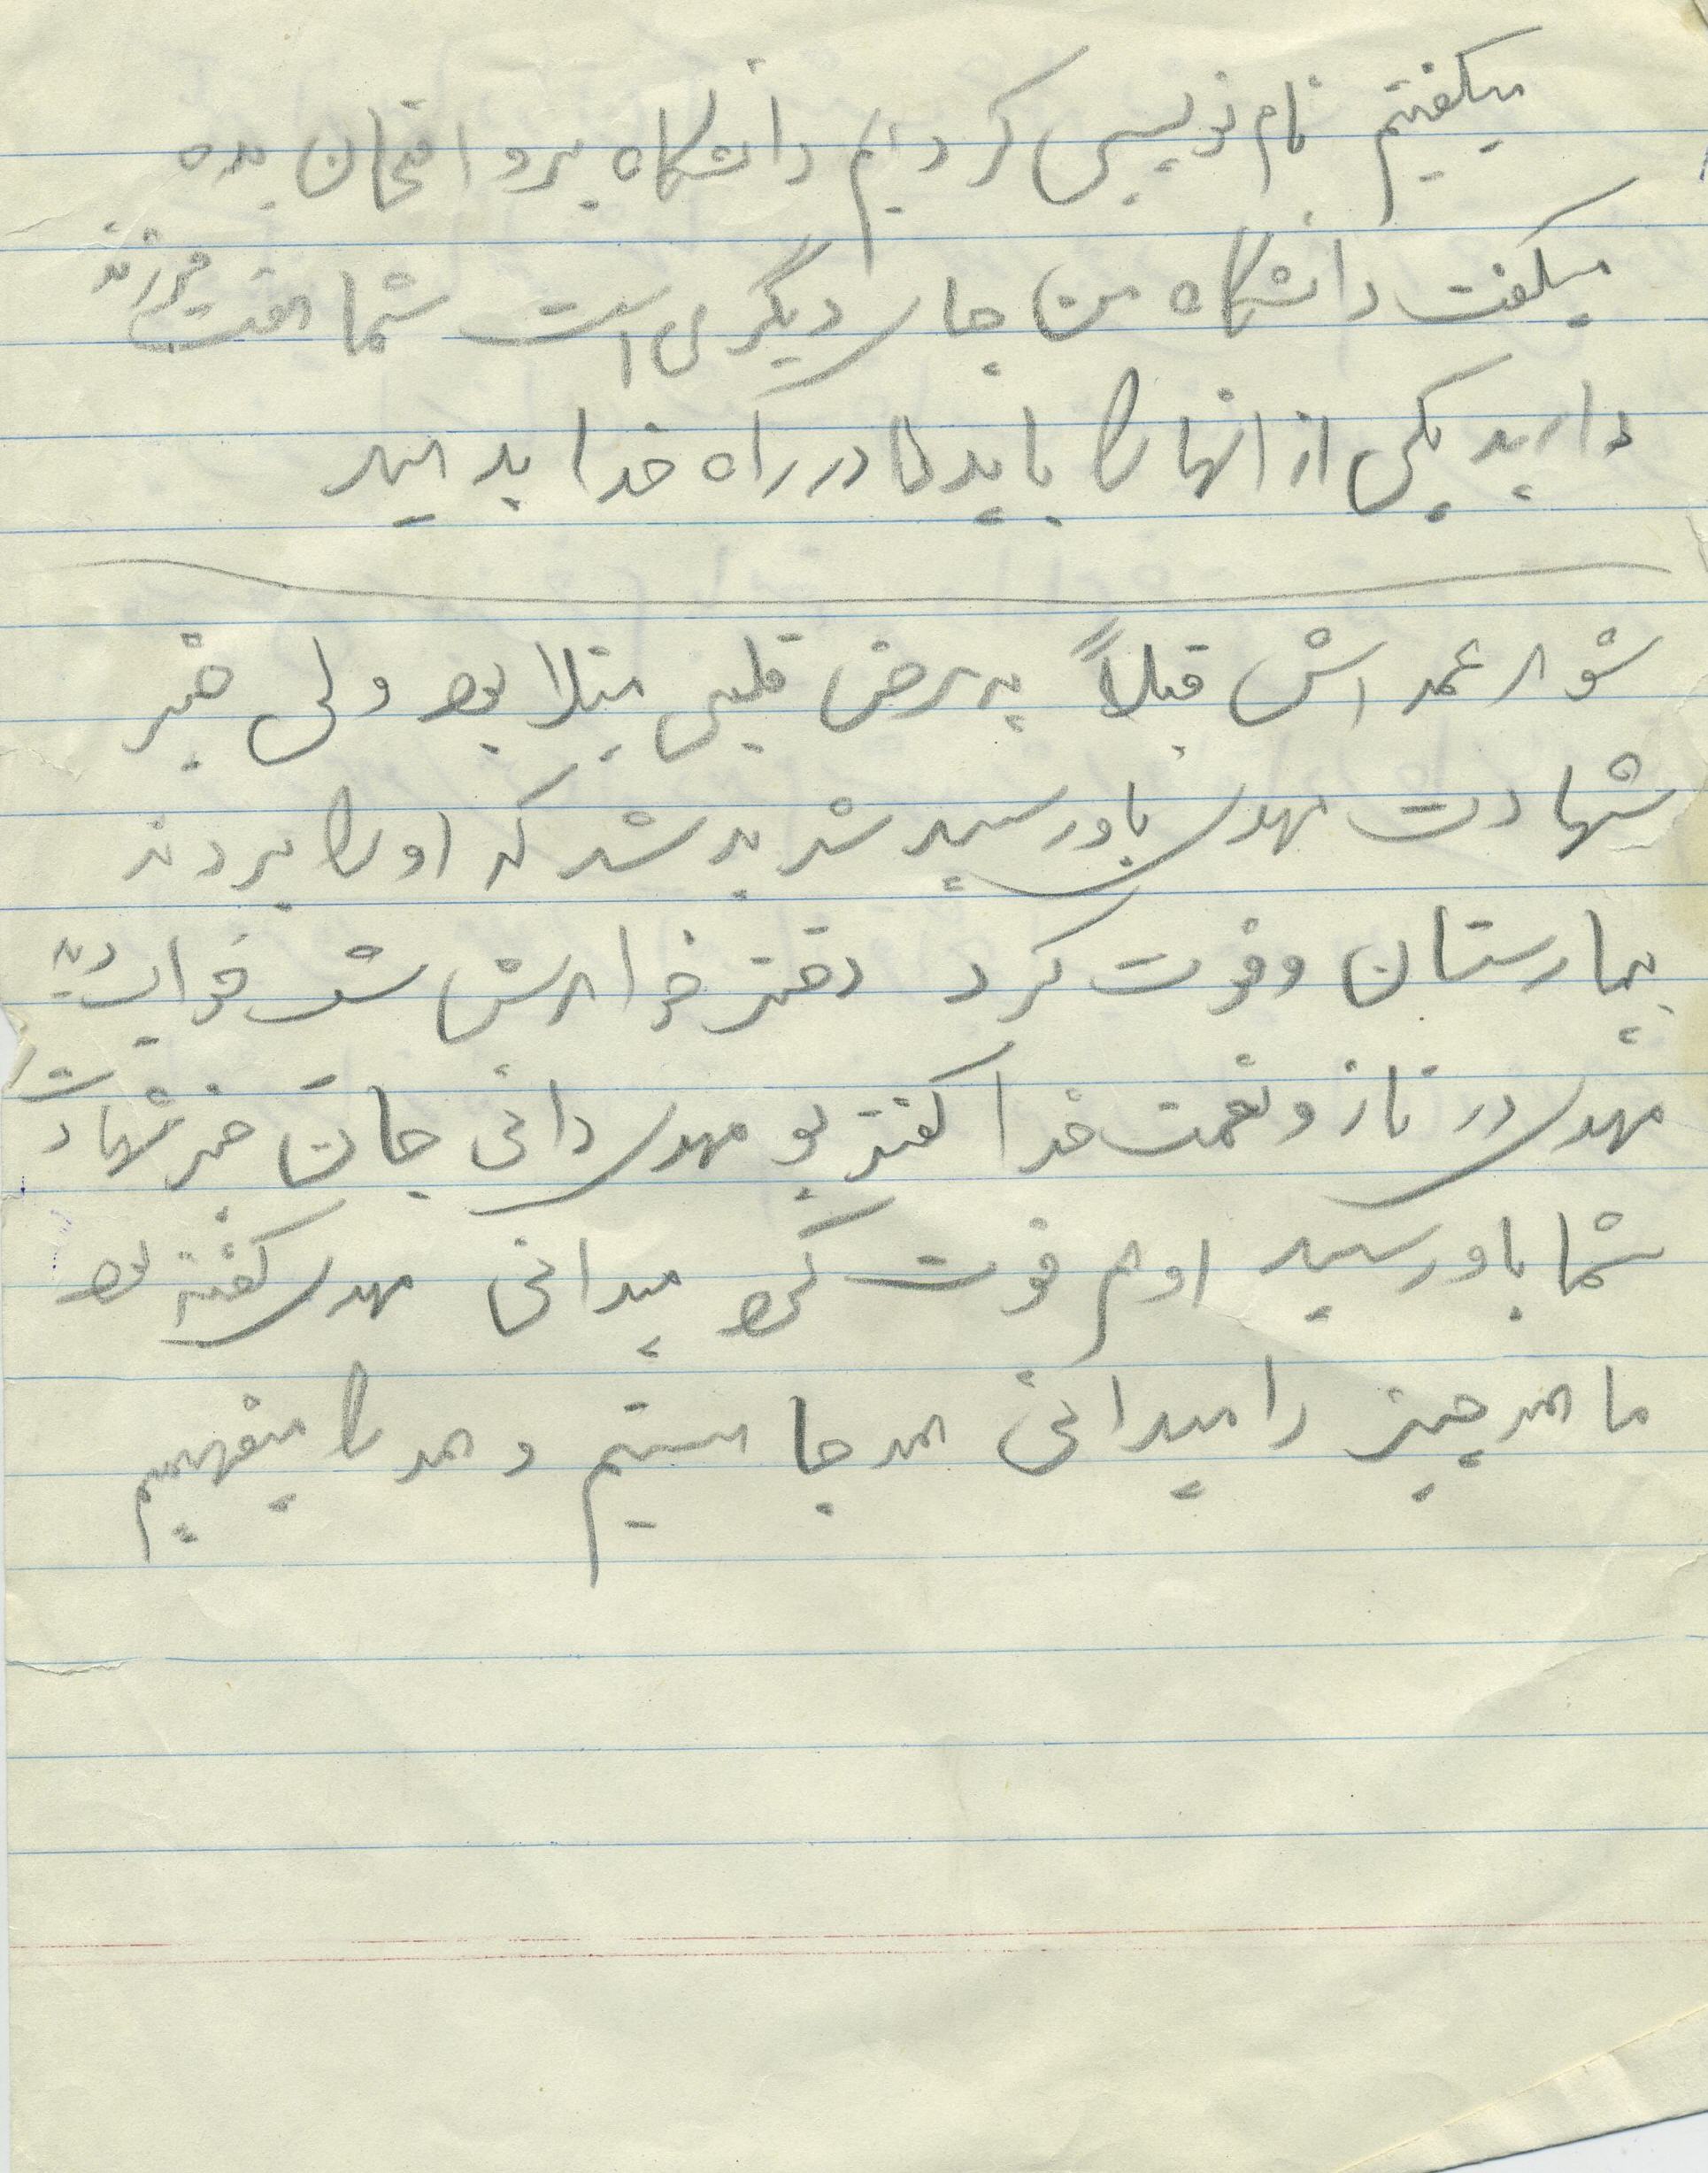 میگفتیم نام نویسی کردیم دانشگاه برو امتحان بده
میگفت دانشگاه من جای دیگری است شما هفت فرزند
دارید یکی از انها را باید در راه خدا بدهید
شوهر عمه اش قبلاً به مرض قلبی مبتلا بود ولی خبر
شهادت مهدی باو رسید شدید شد که او را بردند
بیمارستان و فوت کرد دختر خواهرش شب خواب دید
مهدی در ناز و نعمت خدا گفته بود مهدی دائی جان خبر شهادت
شما باو رسید او هم فوت کرد میدانی مهدی گفته بود
ما همه چیز را میدانی همه جا هستیم و همه را میفهمیم